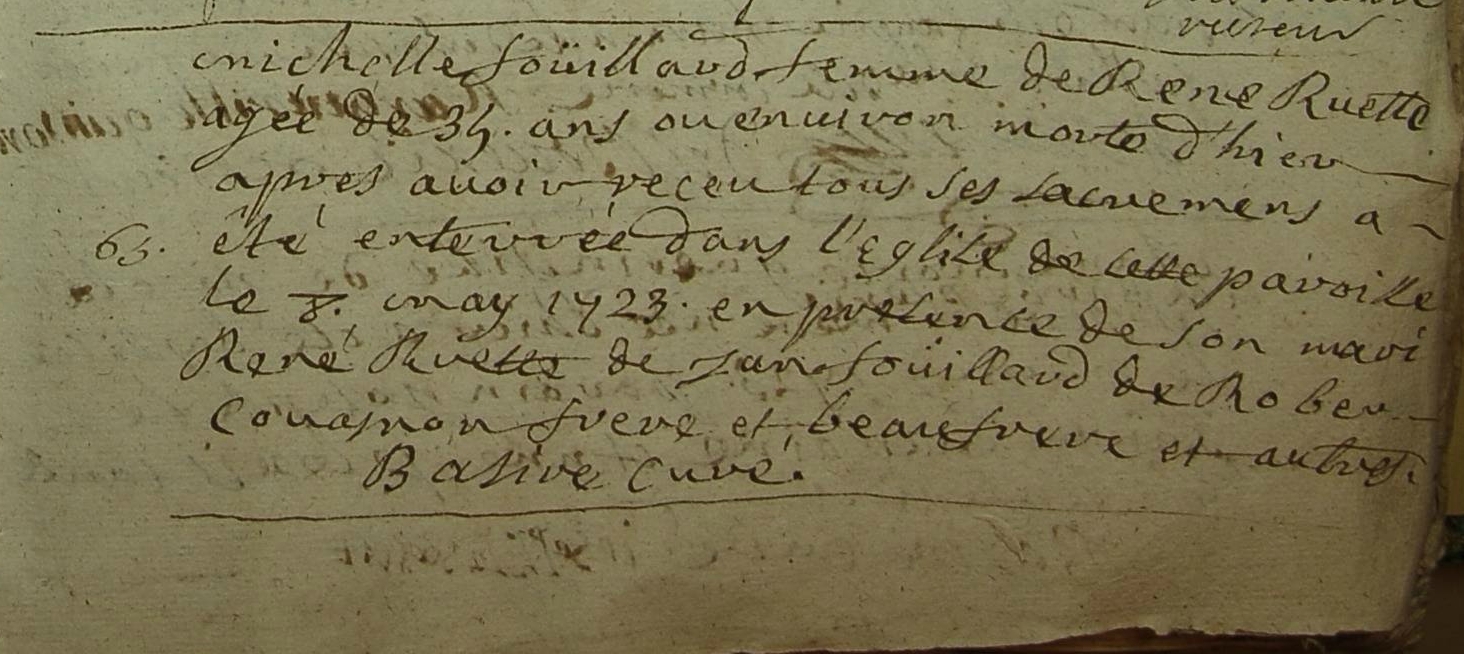 michelle foüillard femme de René Ruette
agée de 35. ans ou enuiron morte d'hier
apres auoir receu tous ses sacremens a
65. été enterrée dans l'Eglise de cette paroisse
le 8. may 1723. en presence de son mari
René Ruette de Jan foüillard de Rober
Couasnon frere et beaufrere et autres.
Basire Curé.